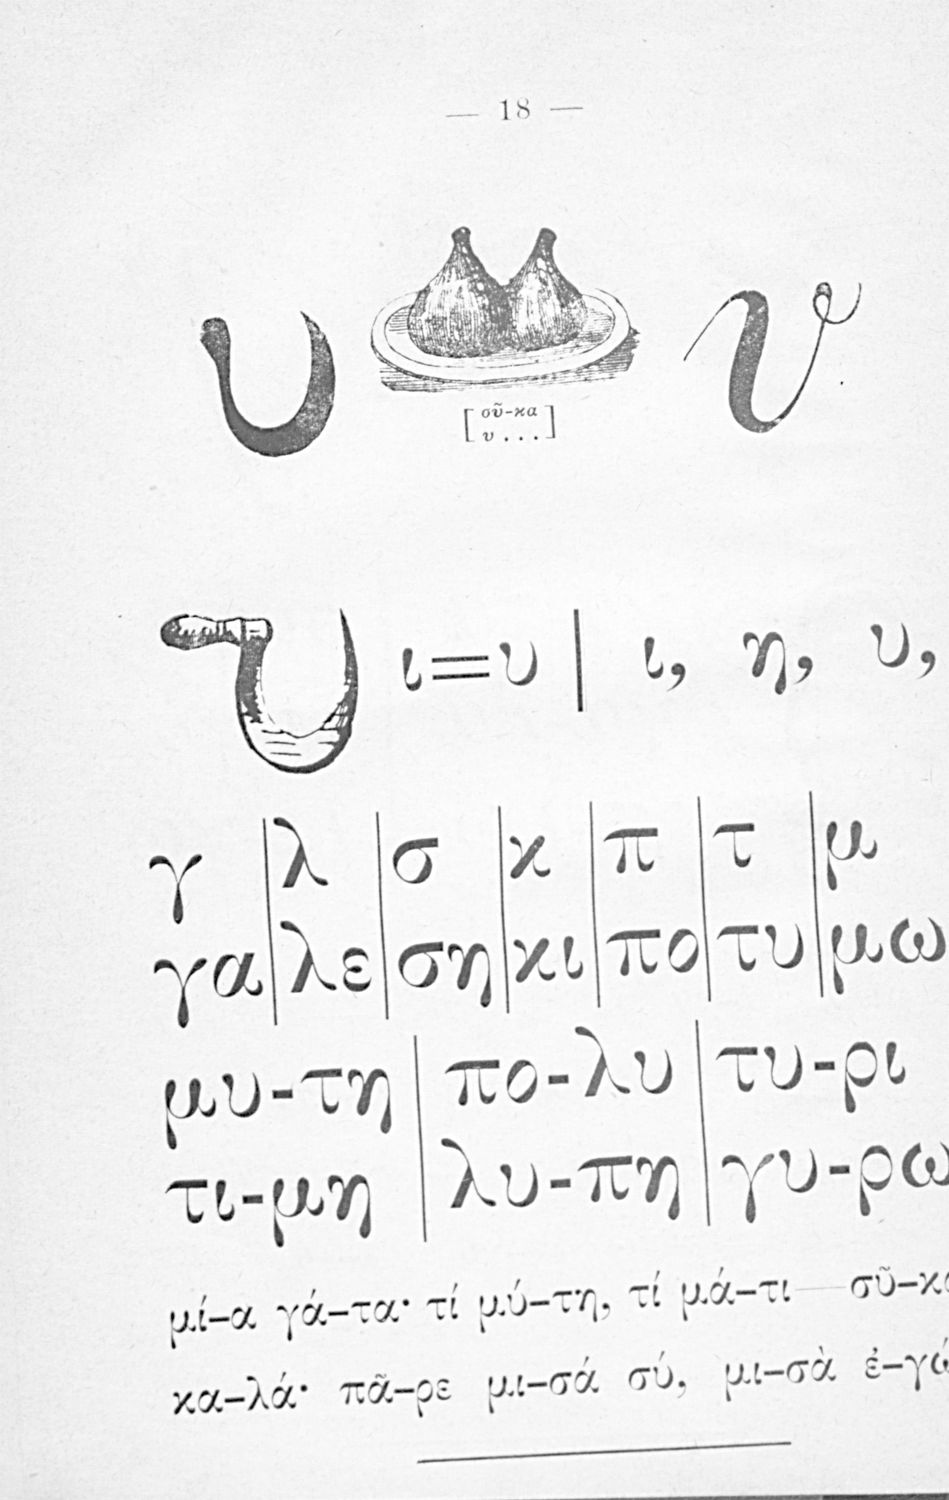 — 18 —
υ υ
[ σῦ-κα
υ . . . ]
υ ι=υ | ι, η, υ,
γ | λ | σ | κ | π | τ | μ
γα | λε | ση | κι | πο | τυ | μω
μυ-τη | πο-λυ | τυ-ρι
τι-μη | λυ-πη | γυ-ρω
μί-α γά-τα· τί μύ-τη, τί μά-τι — σῦ-κα
κα-λά· πᾶ-ρε μι-σά σύ, μι-σὰ ἐ-γώ